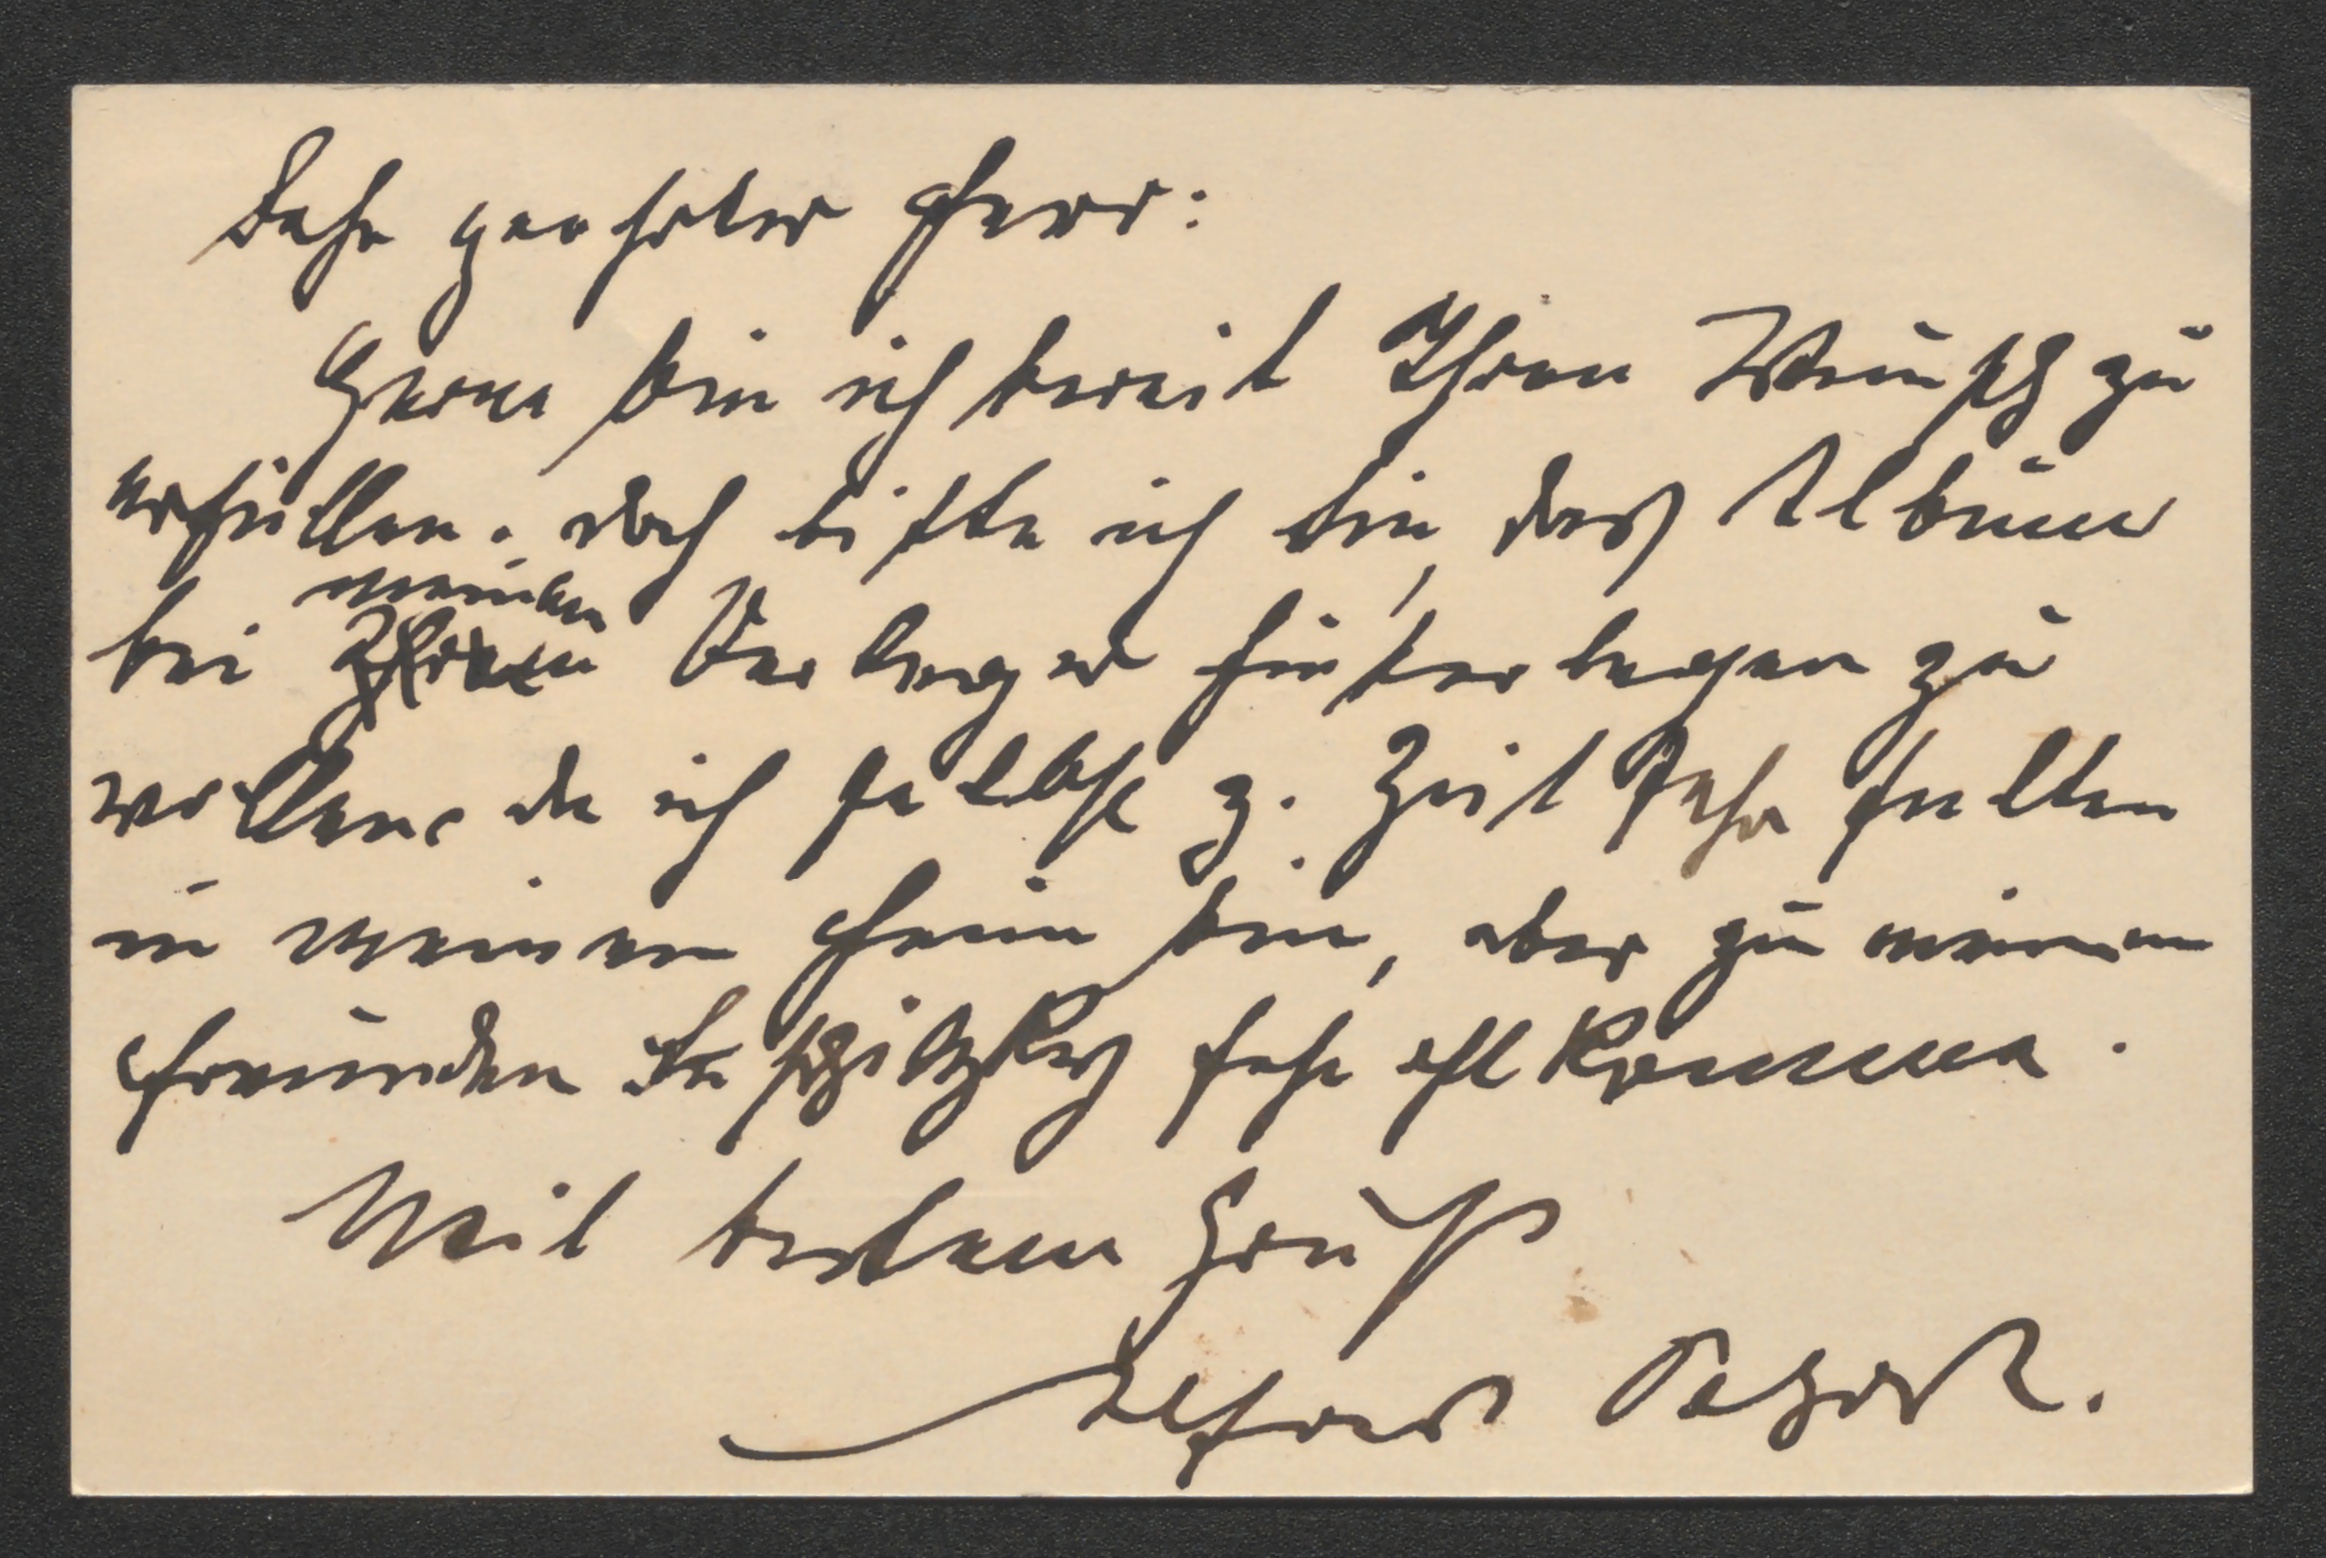 Sehr geehrter Herr:
Gerne bin ich bereit Ihren Wunsch zu
erfüllen. doch bitte ich Sie, das Album
bei meinem Verleger hinterlegen zu
wollen, da ich selbst z. Zeit sehr selten
in meinem Heim bin, aber zu meinen
Freunden sehr oft komme.
Mit bestem Gruß
Alfred